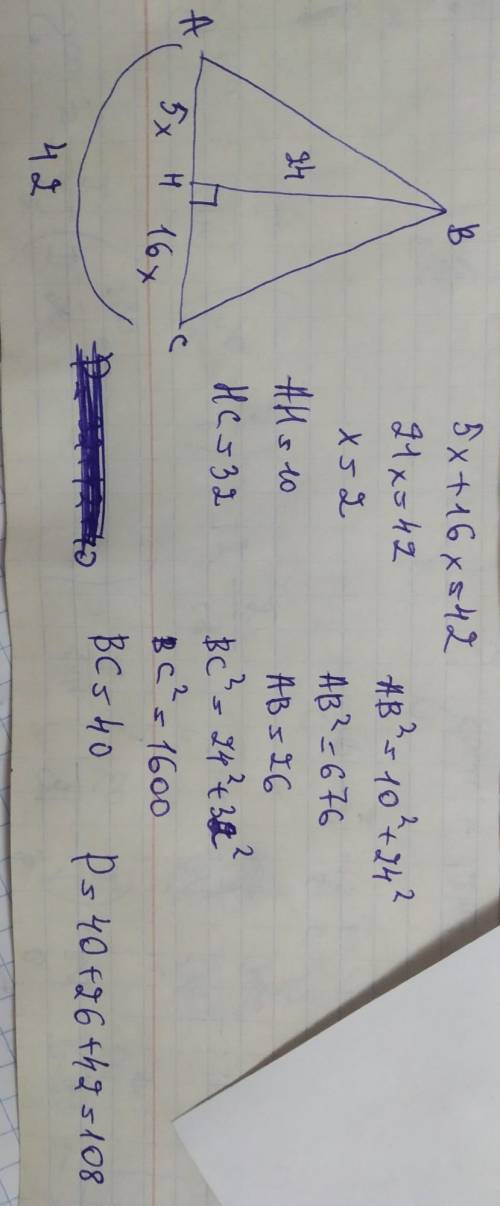 B
24
A 5x H 16x C
42
5x+16x=42
21x=42
x=2
AH=10
HC=32
AB²=10²+24²
AB²=676
AB=26
BC²=24²+32²
BC²=1600
BC=40
P=40+26+42=108